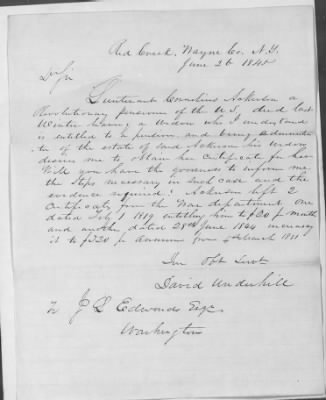 Red Creek, Wayne Co. N.Y.
June 26 1845
Dr Sir
Lieutenant Cornelius Ackerson a
Revolutionary pensioner of the U.S, died last
Winter leaving a Widow who I understand
is entitled to a pension, and being administra
tor of the estate of said Ackerson his widow
desires me to obtain her Certificate for her
Will you have the goodness to inform me
the steps necessary in such case and the
evidence required? Ackerson left 2
Certificates from the War department, one
dated July 1 1819 entitling him to $20 pr month
and another, dated 28th June 1844 increasing
it to $320 pr Annum from 4 March 1831
Your Obt Servt
David Underhill
To J L Edwards Esqr
Washington